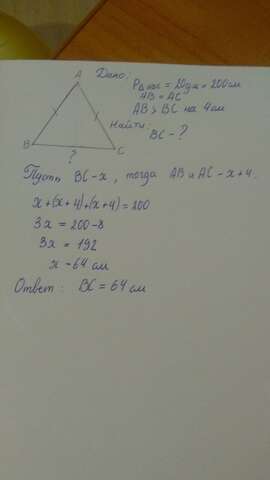 A Дано:
P△ABC = 20дм = 200см
AB = AC
AB > BC на 4см
Найти:
BC - ?
B C
?
Пусть BC - x, тогда AB и AC - x+4.
x+(x+4)+(x+4)=200
3x = 200-8
3x = 192
x - 64 см
Ответ: BC = 64 см